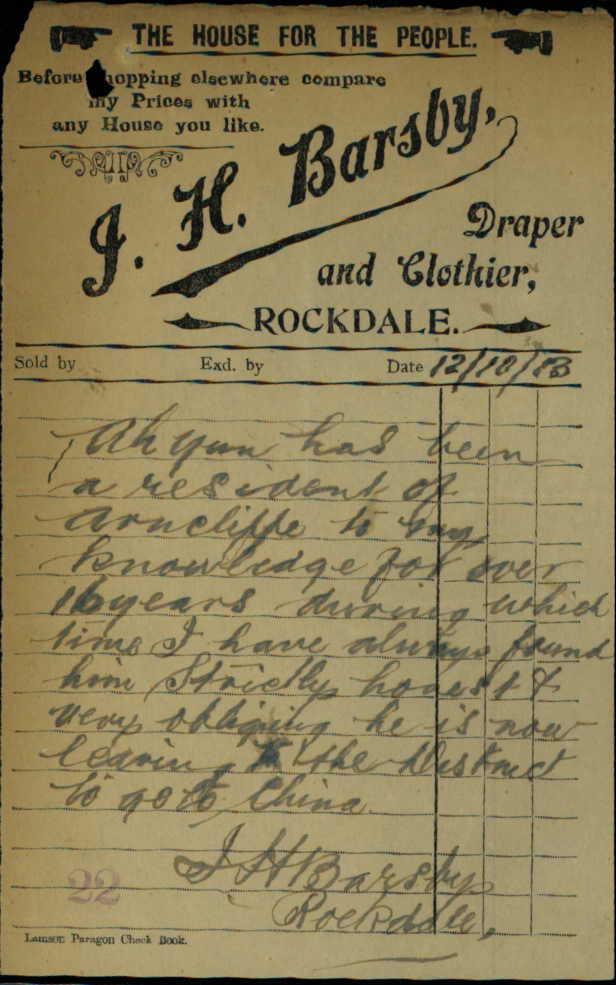 THE HOUSE FOR THE PEOPLE.
Before hopping elsewhere compare
my Prices with
any House you like.
J. H. Barsby,
Draper
and Clothier,
ROCKDALE.
Sold by Exd. by Date 12/10/13
Ah Yum has been
a resident of
Arncliffe to my
knowledge for over
16 years during which
time I have always found
him Strictly honest &
very obliging he is now
leaving the District
to go to China.
J H Barsby
22
Rockdale,
Lamson Paragon Check Book.